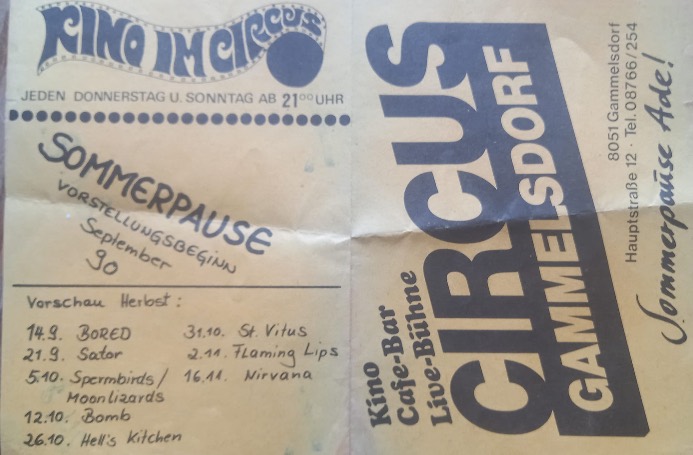 KINO IM CIRCUS
JEDEN DONNERSTAG U. SONNTAG AB 21⁰⁰ UHR
SOMMERPAUSE
VORSTELLUNGSBEGINN
September
90
Vorschau Herbst:
14.9. BORED
21.9. Sator
5.10. Spermbirds/
Moonlizards
12.10. Bomb
26.10. Hell's Kitchen
31.10. St. Vitus
2.11. Flaming Lips
16.11. Nirvana
Kino
Cafe-Bar
Live-Bühne
CIRCUS
GAMMELSDORF
8051 Gammelsdorf
Hauptstraße 12 · Tel. 08766/254
Sommerpause Ade!